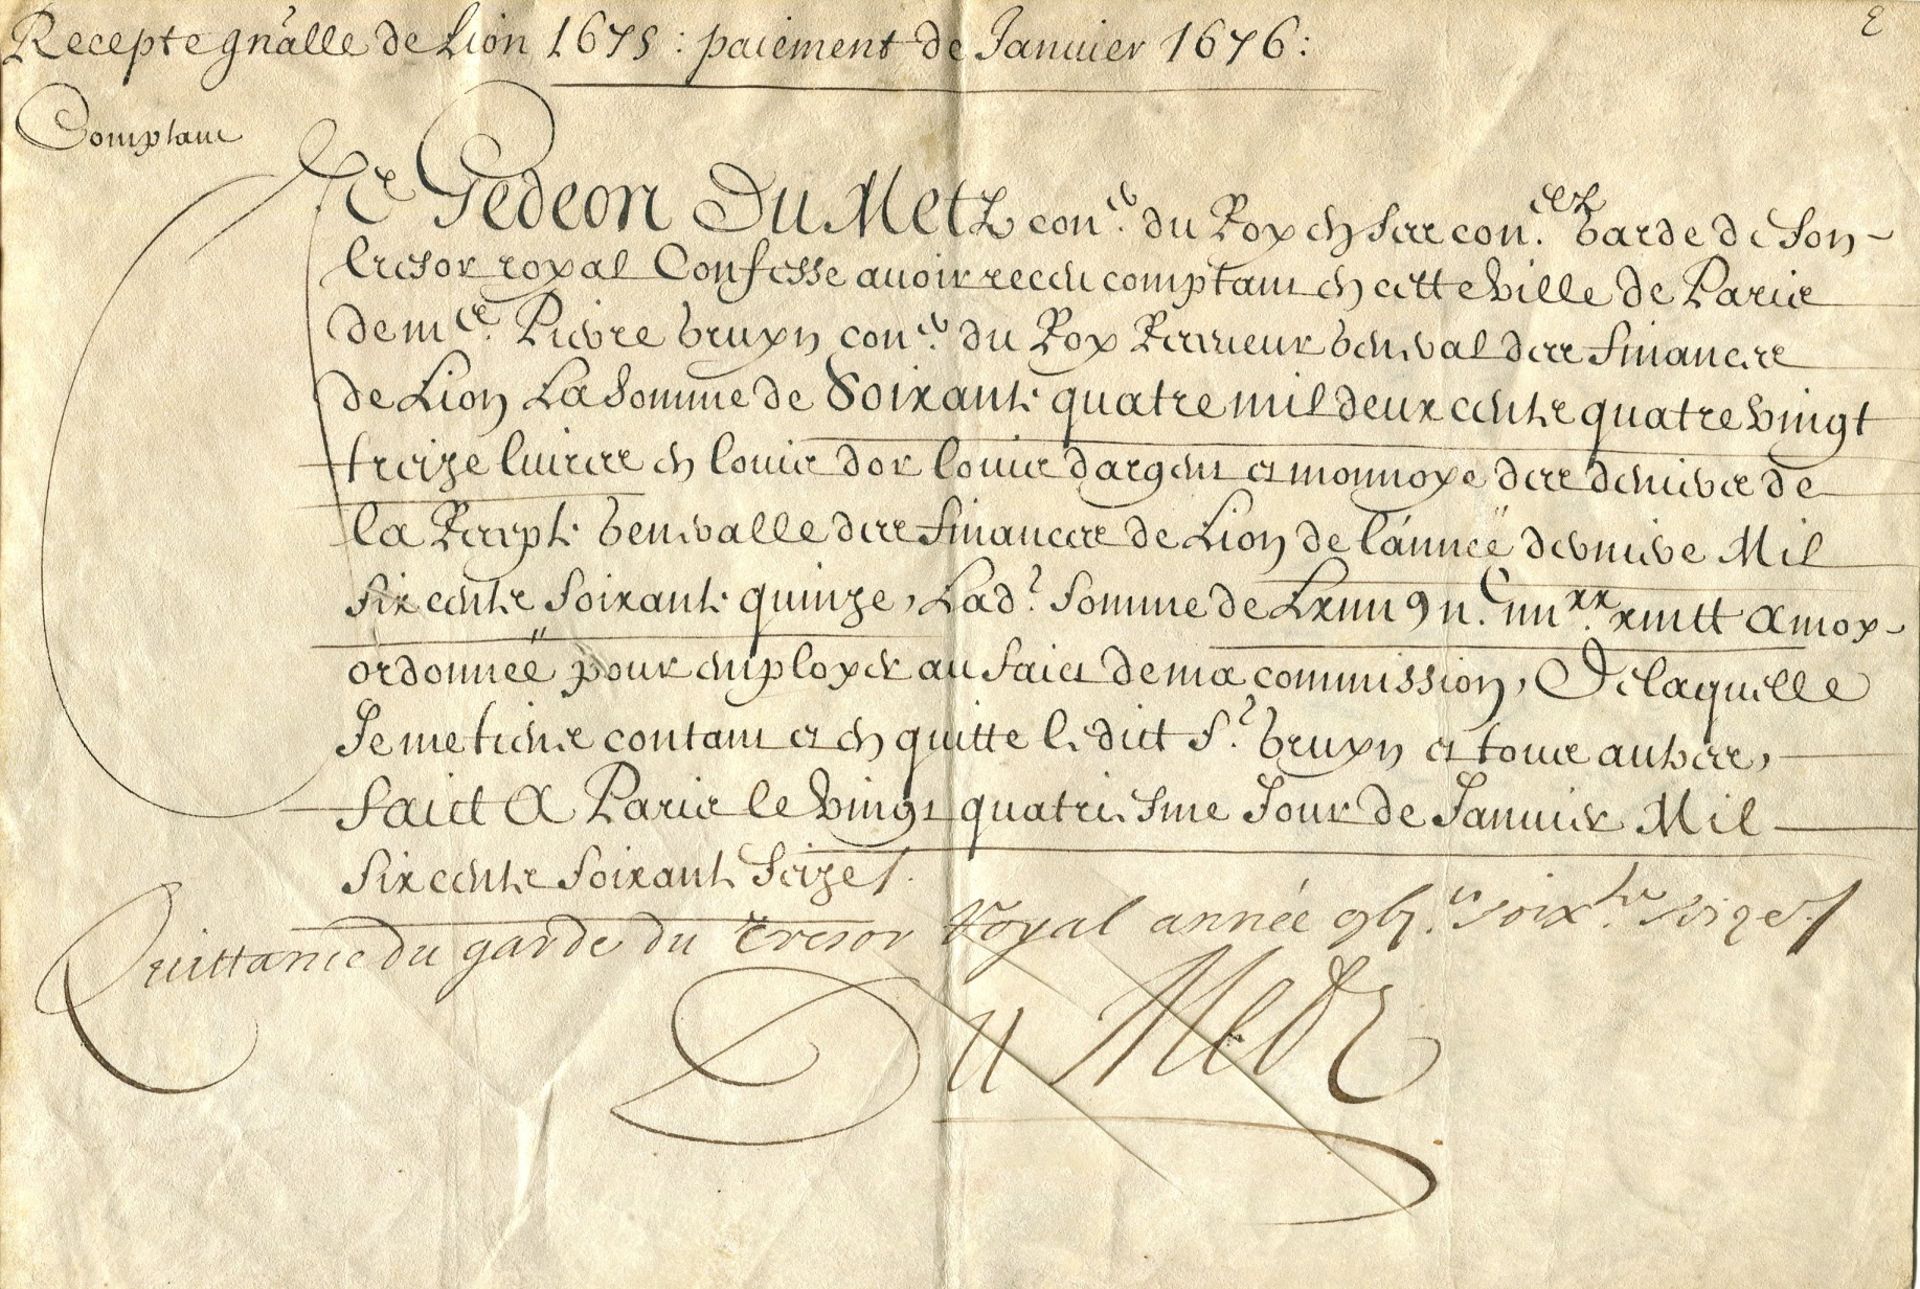 Recepte gnâlle de Lion 1675 : paiement de Janvier 1676 :
Comptant
Mre Gedeon Du Metz con.er du Roy en ses con.elz garde de son
tresor royal Confesse avoir receu comptant en cette ville de Paris
de m.re Pierre bruyn con.er du Roy Receveur general des finances
de Lion La somme de Soixante quatre mil deux cents quatre vingt
treize livres en louis dor louis dargent et monnoye des deniers de
la Recepte generalle des finances de Lion de l'année derniere Mil
six cents soixante quinze, Lad.? somme de Lxiiii m ii.c iiii.xx xiii tt a moy
ordonnée pour employer au faict de ma commission, De laquelle
Je me tiens contant et en quitte ledict s.? bruyn et tous autres,
faict a Paris le vingt quatriesme Jour de Janvier Mil
six cents soixante seize /.
Quittance du garde du Tresor Royal année soix.te seize /
Du Metz